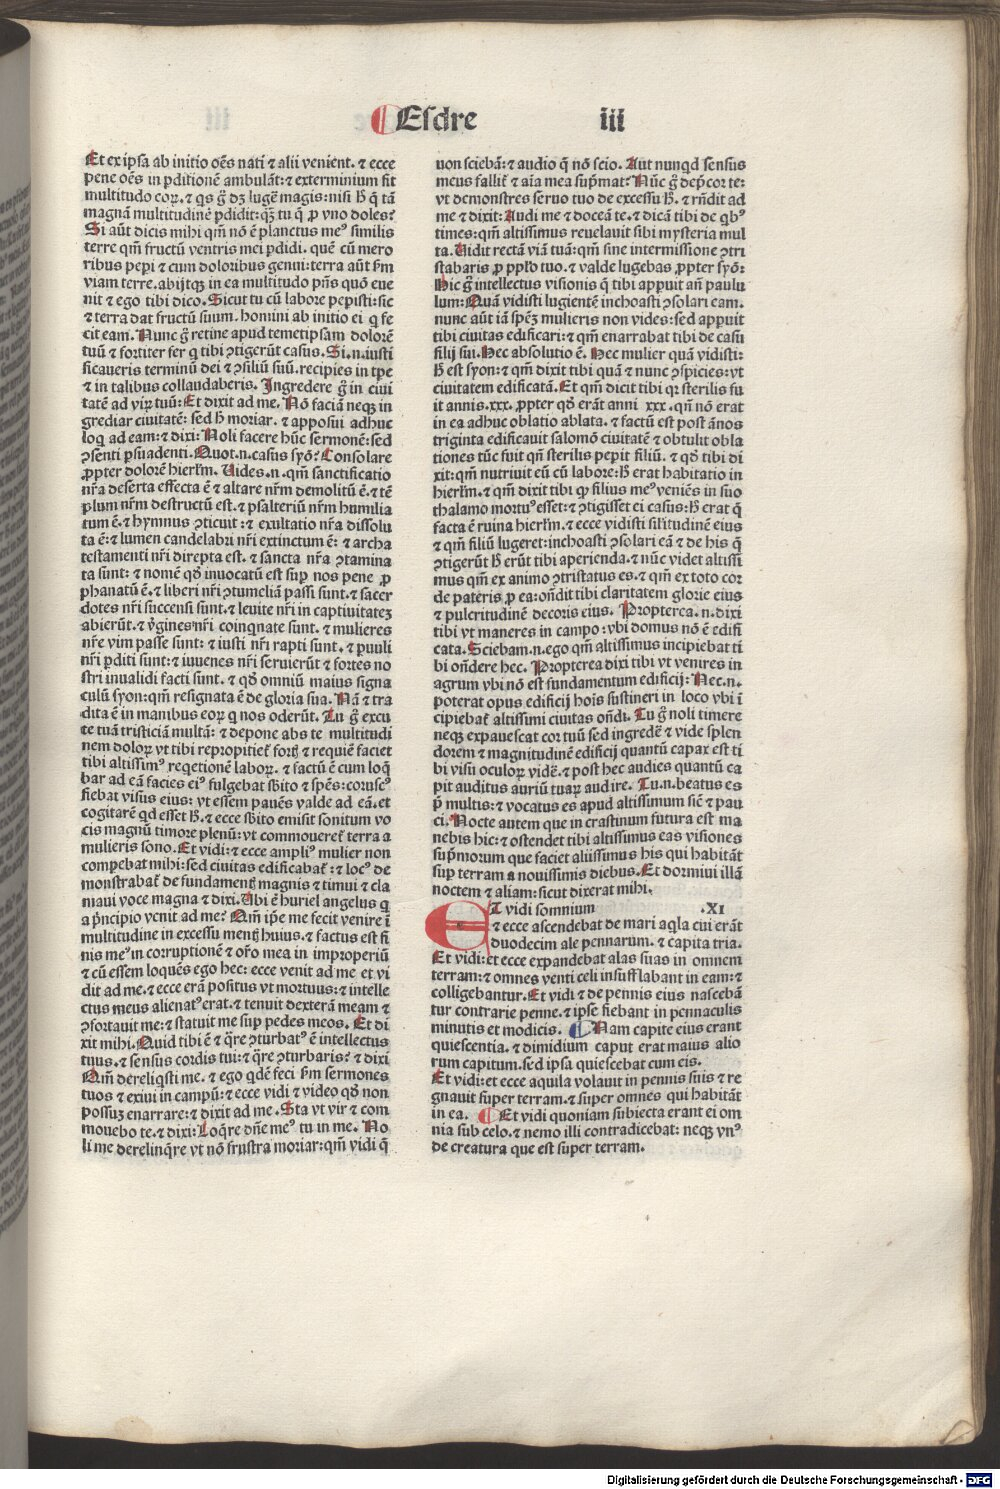 Esdre iii
Et ex ipsa ab initio oẽs nati ⁊ alii venient. ⁊ ecce
pene oẽs in ꝑditionẽ ambulãt: ⁊ exterminium fit
multitudo coꝝ. ⁊ qs g̃ dꝫ lugẽ magis: nisi h̃ q̃ tã
magnã multitudinẽ ꝑdidit: qꝫ tu q̃ ꝓ vno doles?
Si aũt dicis mihi qm̃ nõ ẽ planctus meꝰ similis
terre qm̃ fructũ ventris mei ꝑdidi. quẽ cũ mero
ribus peꝑi ⁊ cum doloribus genui: terra aũt ẜm
viam terre. abijtqꝫ in ea multitudo pñs quõ eue
nit ⁊ ego tibi dico. Sicut tu cũ labore peꝑisti: sic
⁊ terra dat fructũ suum. homini ab initio ei q fe
cit eam. Nunc g̃ retine apud temetipsam dolorẽ
tuũ ⁊ fortiter fer q̃ tibi ꝯtigerũt casus. Si. n. iusti
ficaueris terminũ dei ⁊ ꝯsiliũ suũ. recipies in tꝑe
⁊ in talibus collaudaberis. Ingredere g̃ in ciui
tatẽ ad viꝝ tuũ: Et dixit ad me. Nõ faciã neqꝫ in
grediar ciuitatẽ: sed h̃ moriar. ⁊ apposui adhuc
loq̃ ad eam: ⁊ dixi: Noli facere hũc sermonẽ: sed
ꝯsenti ꝑsuadenti. Quot. n. casus syõ? Consolare
ꝓpter dolorẽ hierl̃m. Uides. n. qm̃ sanctificatio
nr̃a deserta effecta ẽ ⁊ altare nr̃m demolitũ ẽ. ⁊ tẽ
plum nr̃m destructũ est. ⁊ psalteriũ nr̃m humilia
tum ẽ. ⁊ hymnus ꝯticuit: ⁊ exultatio nr̃a dissolu
ta ẽ: ⁊ lumen candelabri nr̃i extinctum ẽ: ⁊ archa
testamenti nr̃i direpta est. ⁊ sancta nr̃a ꝯtamina
ta sunt: ⁊ nomẽ qd̃ inuocatũ est suꝑ nos pene ꝓ
phanatũ ẽ. ⁊ liberi nr̃i ꝯtumeliã passi sunt. ⁊ sacer
dotes nr̃i succensi sunt. ⁊ leuite nr̃i in captiuitateꝫ
abierũt. ⁊ ṽgines nr̃i coinqnate sunt. ⁊ mulieres
nr̃e vim passe sunt: ⁊ iusti nr̃i rapti sunt. ⁊ puuli
nr̃i ꝑditi sunt: ⁊ iuuenes nr̃i seruierũt ⁊ fortes no
stri inualidi facti sunt. ⁊ qd̃ omniũ maius signa
culũ syon: qm̃ resignata ẽ de gloria sua. Nã ⁊ tra
dita ẽ in manibus eoꝝ q nos oderũt. Tu g̃ excu
te tuã tristiciã multã: ⁊ depone abs te multitudi
nem doloꝝ vt tibi repropitieť fortꝭ ⁊ requiẽ faciet
tibi altissimꝰ reqetionẽ laboꝝ. ⁊ factũ ẽ cum loq̃
bar ad eã facies eiꝰ fulgebat s̃bito ⁊ spẽs: coruscꝰ
fiebat visus eius: vt essem pauẽs valde ad eã. et
cogitarẽ qd esset h̃. ⁊ ecce s̃bito emisit sonitum vo
cis magnũ timore plenũ: vt commoueret̃ terra a
mulieris sono. Et vidi: ⁊ ecce ampliꝰ mulier non
comꝑebat mihi: sed ciuitas edificabat̃: ⁊ locꝰ de
monstrabat̃ de fundamentꝭ magnis ⁊ timui ⁊ cla
maui voce magna ⁊ dixi. Ubi ẽ huriel angelus q
a p̃ncipio venit ad me? Qm̃ ip̃e me fecit venire ĩ
multitudine in excessu mentꝭ huius. ⁊ factus est fi
nis meꝰ in corruptionẽ ⁊ or̃o mea in improperiũ
⁊ cũ essem loquẽs ego hec: ecce venit ad me et vi
dit ad me. ⁊ ecce erã positus vt mortuus: ⁊ intelle
ctus meus alienatꝰ erat. ⁊ tenuit dexterã meam ⁊
ꝯfortauit me: ⁊ statuit me suꝑ pedes meos. Et di
xit mihi. Quid tibi ẽ ⁊ q̃re ꝯturbatꝰ ẽ intellectus
tuus. ⁊ sensus cordis tui: ⁊ q̃re ꝯturbaris? ⁊ dixi
Qm̃ dereliqsti me. ⁊ ego qdẽ feci ẜm sermones
tuos ⁊ exiui in campũ: ⁊ ecce vidi ⁊ video qd̃ non
possuꝫ enarrare: ⁊ dixit ad me. Sta vt vir ⁊ com
mouebo te. ⁊ dixi: Loq̃re dñe meꝰ tu in me. No
li me derelinq̃re vt nõ frustra moriar: qm̃ vidi q̃
non sciebã: ⁊ audio q̃ nõ scio. Aut nunqd sensus
meus fallit̃ ⁊ aĩa mea suꝑmat? Nũc g̃ dep̃cor te:
vt demonstres seruo tuo de excessu h̃. ⁊ rñdit ad
me ⁊ dixit: Audi me ⁊ doceã te. ⁊ dicã tibi de qbꝰ
times: qm̃ altissimus reuelauit tibi mysteria mul
ta. Uidit rectã viã tuã: qm̃ sine intermissione ꝯtri
stabaris ꝓ pp̃lo tuo. ⁊ valde lugebas ꝓpter syõ:
Hic g̃ intellectus visionis q̃ tibi apꝑuit añ paulu
lum: Quã vidisti lugientẽ inchoasti ꝯsolari eam.
nunc aũt iã spẽꝫ mulieris non vides: sed apꝑuit
tibi ciuitas edificari: ⁊ qm̃ enarrabat tibi de casu
filij sui. Hec absolutio ẽ. Hec mulier quã vidisti:
h̃ est syon: ⁊ qm̃ dixit tibi quã ⁊ nunc ꝯspicies: vt
ciuitatem edificatã. Et qm̃ dicit tibi qꝛ sterilis fu
it annis. xxx. ꝓpter qd̃ erãt anni xxx. qñ nõ erat
in ea adhuc oblatio ablata. ⁊ factũ est post ãnos
triginta edificauit salomõ ciuitatẽ ⁊ obtulit obla
tiones tũc fuit qñ sterilis peꝑit filiũ. ⁊ qd̃ tibi di
xit: qm̃ nutriuit eũ cũ labore: h̃ erat habitatio in
hierl̃m. ⁊ qm̃ dixit tibi ꝙ filius meꝰ veniẽs in suo
thalamo mortuꝰ esset: ⁊ ꝯtigisset ei casus: h̃ erat q̃
facta ẽ ruina hierl̃m. ⁊ ecce vidisti sil̃itudinẽ eius
⁊ qm̃ filiũ lugeret: inchoasti ꝯsolari eã ⁊ de his q̃
ꝯtigerũt h̃ erũt tibi aperienda. ⁊ nũc videt altissi
mus qm̃ ex animo ꝯtristatus es. ⁊ qm̃ ex toto cor
de pateris ꝓ ea: oñdit tibi claritatem glorie eius
⁊ pulcritudinẽ decoris eius. Propterea. n. dixi
tibi vt maneres in campo: vbi domus nõ ẽ edifi
cata. Sciebam. n. ego qm̃ altissimus incipiebat ti
bi oñdere hec. Propterea dixi tibi vt venires in
agrum vbi nõ est fundamentum edificij: Nec. n.
poterat opus edificij hoĩs sustineri in loco vbi ĩ
cipiebat̃ altissimi ciuitas oñdi. Tu g̃ noli timere
neqꝫ expauescat cor tuũ sed ingredẽ ⁊ vide splen
dorem ⁊ magnitudinẽ edificij quantũ capax est ti
bi visu oculoꝝ vidẽ. ⁊ post hec audies quantũ ca
pit auditus auriũ tuaꝝ audire. Tu. n. beatus es
p̃ multis: ⁊ vocatus es apud altissimum sic̃ ⁊ pau
ci. Nocte autem que in crastinum futura est ma
nebis hic: ⁊ ostendet tibi altissimus eas visiones
sup̃morum que faciet altissimus his qui habitãt
suꝑ terram a nouissimis diebus. Et dormiui illã
noctem ⁊ aliam: sicut dixerat mihi.
ET vidi somnium .XI
⁊ ecce ascendebat de mari aqla cui erãt
duodecim ale pennarum. ⁊ capita tria.
Et vidi: et ecce expandebat alas suas in omnem
terram: ⁊ omnes venti celi insufflabant in eam: ⁊
colligebantur. Et vidi ⁊ de pennis eius nascebã
tur contrarie penne. ⁊ ipse fiebant in pennaculis
minutis et modicis. Nam capite eius erant
quiescentia. ⁊ dimidium caput erat maius alio
rum capitum. sed ipsa quiescebat cum eis.
Et vidi: et ecce aquila volauit in pennis suis ⁊ re
gnauit super terram. ⁊ super omnes qui habitãt
in ea. Et vidi quoniam subiecta erant ei om
nia sub celo. ⁊ nemo illi contradicebat: neqꝫ vnꝰ
de creatura que est super terram.
Digitalisierung gefördert durch die Deutsche Forschungsgemeinschaft - DFG